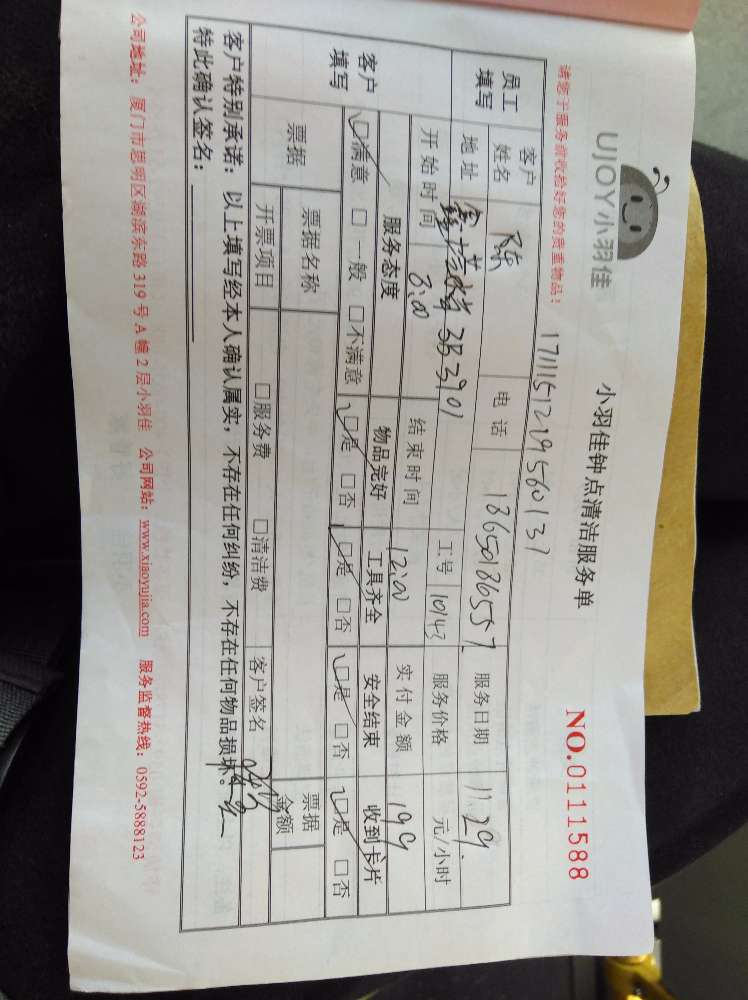 UJOY小羽佳
小羽佳钟点清洁服务单
NO.0111588
请您于服务前收验好您的贵重物品：
员工填写 客户姓名 陈 电话 18650186557 服务日期 11.29.
地址 3B 3901 工号 10143 服务价格 元/小时
开始时间 8:00 结束时间 12:00 实付金额 199
客户填写 服务态度 物品完好 工具齐全 安全结束 收到卡片
☑满意 □一般 □不满意 ☑是 □否 ☑是 □否 ☑是 □否 ☑是 □否
票据 票据名称 票据金额
开票项目 □服务费 □清洁费 客户签名
客户特别承诺：以上填写经本人确认属实，不存在任何纠纷，不存在任何物品损坏。
特此确认签名：
公司地址：厦门市思明区湖滨东路319号A幢2层小羽佳 公司网站：www.xiaoyujia.com 服务监督热线：0592-5888123